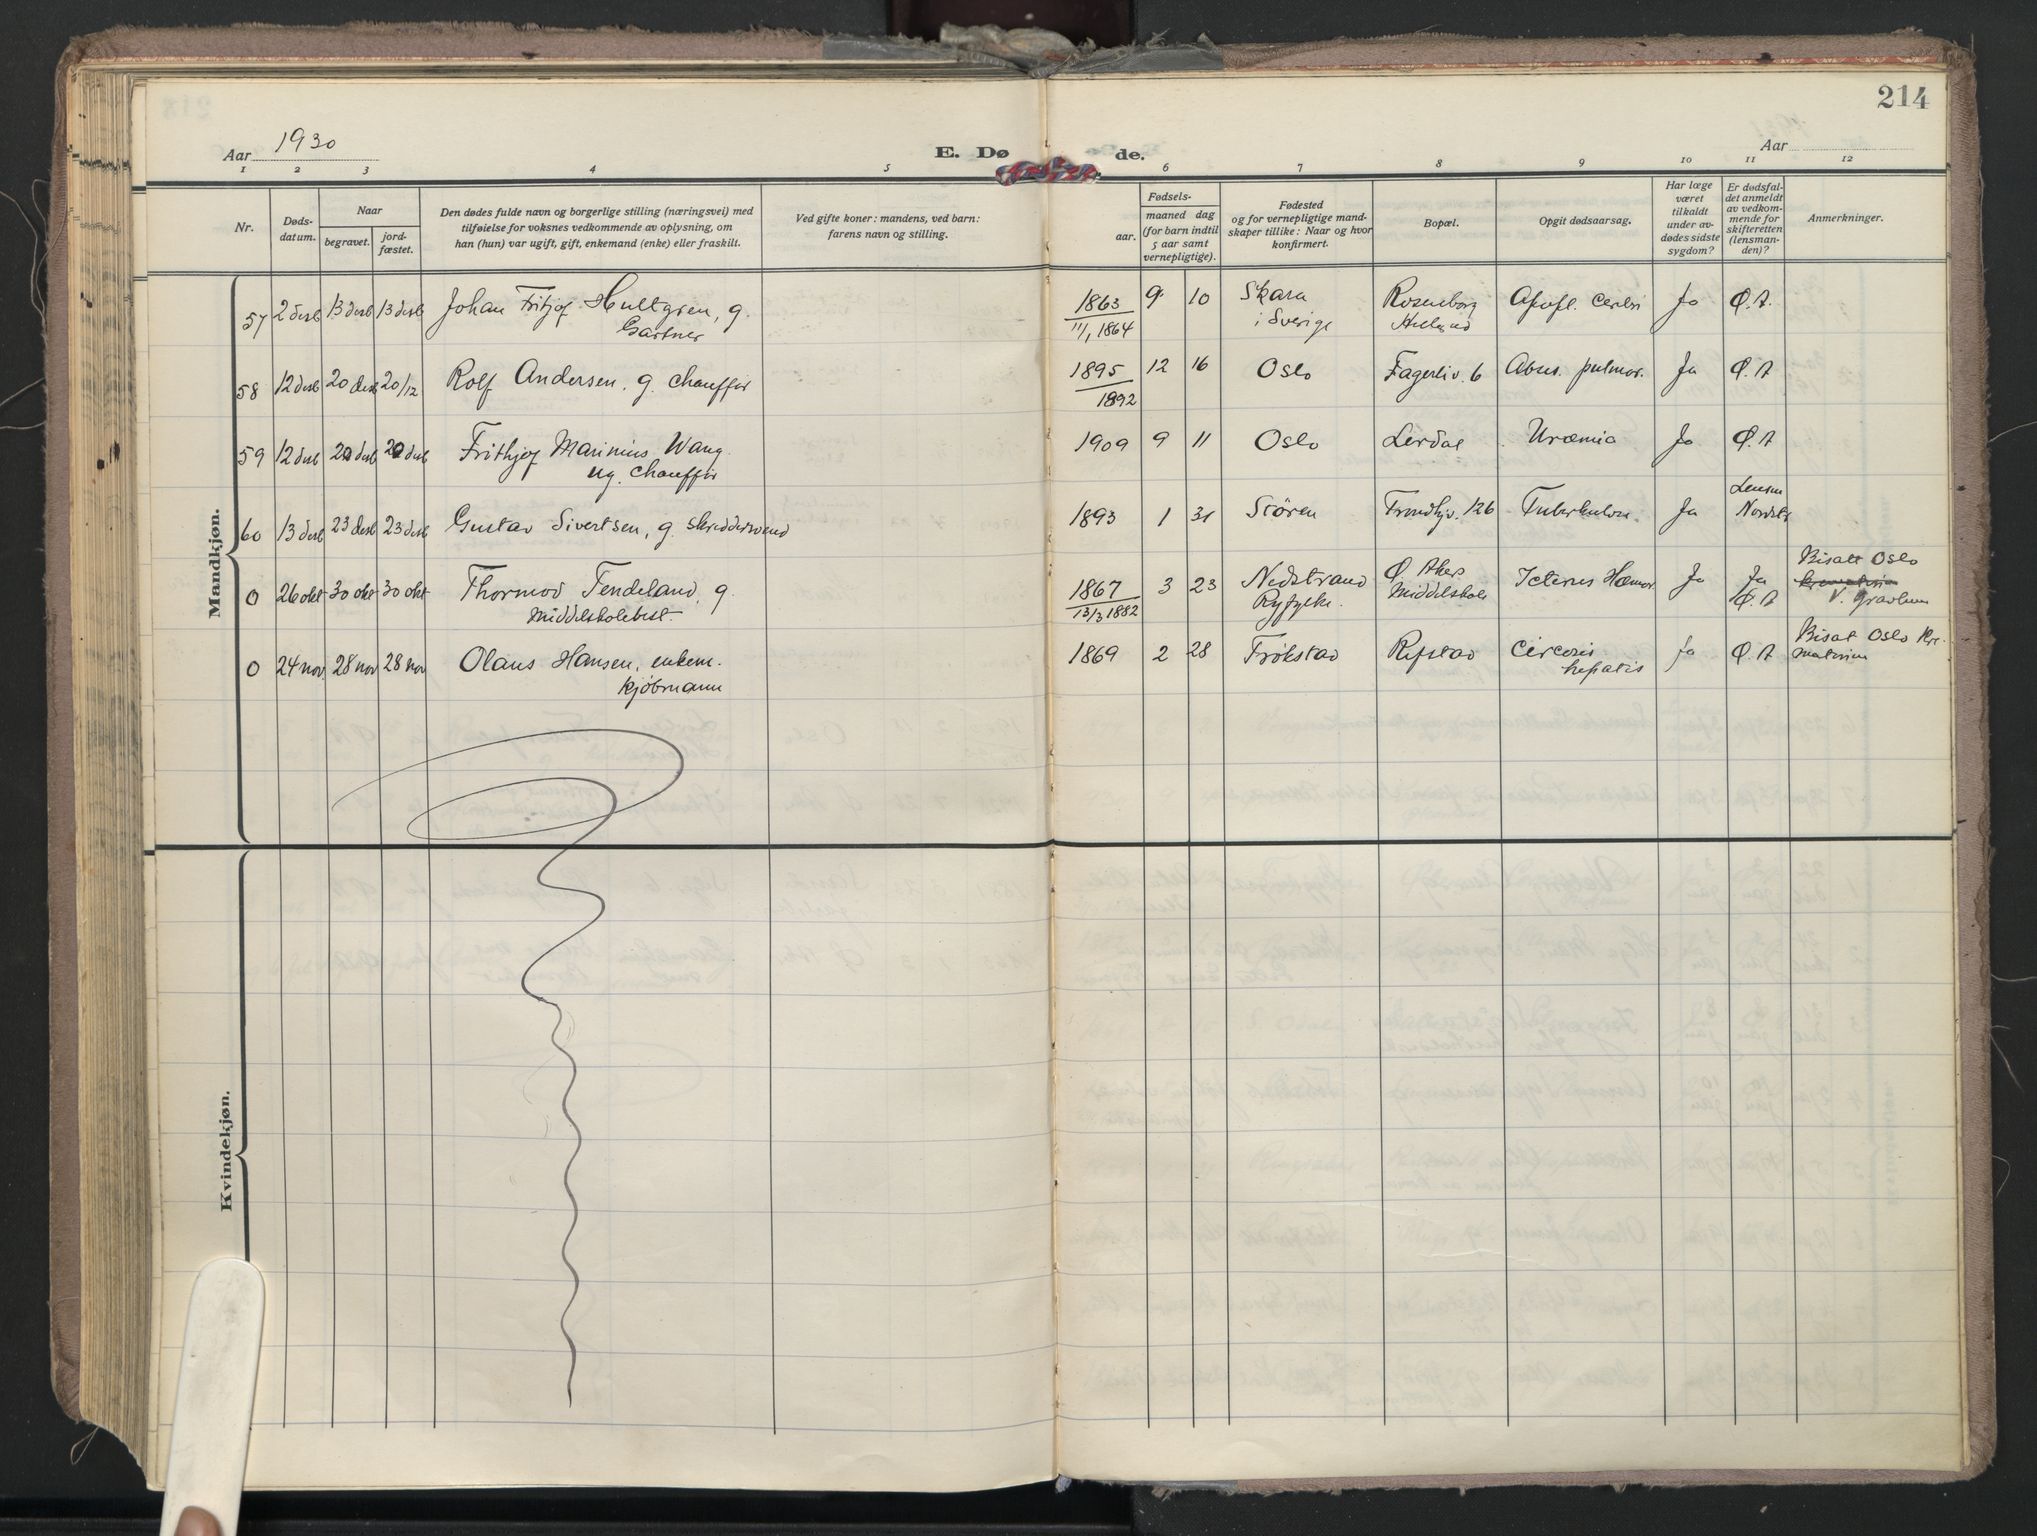 214
Aar 1930
E. Dø de.
Aar
1 2 3 4 5 6 7 8 9 10 11 12
Nr.
Døds-
datum.
Naar
begravet.
jord-
fæstet.
Den dødes fulde navn og borgerlige stilling (næringsvei) med
tilføielse for voksnes vedkommende av oplysning, om
han (hun) var ugift, gift, enkemand (enke) eller fraskilt.
Ved gifte koner: mandens, ved barn:
farens navn og stilling.
Fødsels-
aar.
maaned dag
(for barn indtil
5 aar samt
vernepligtige).
Fødested
og for vernepligtige mand-
skaper tillike: Naar og hvor
konfirmert.
Bopæl.
Opgit dødsaarsag.
Har læge
været
tilkaldt
under av-
dødes sidste
sygdom?
Er dødsfal-
det anmeldt
av vedkom-
mende for
skifteretten
(lensman-
den)?
Anmerkninger.
Mandkjøn.
57 2 desb 13 desb 13 desb Johan Fritjof Hultgren, g. 1863 9 10 Skara Rosenborg Apopl. cerebri Ja Ø. A.
Gartner 11/1 1864 i Sverige
58 12 desb 20 desb 20/12 Rolf Andersen, g. chauffør 1895 12 16 Oslo Fagerliv. 6 Absc. pulmor. Ja Ø. A
1892
59 12 desb 20 desb 20 desb Frithjof Marinius Wang 1909 9 11 Oslo Lerdal Uræmia Ja Ø. A
ug. chauffør
60 13 desb 23 desb 23 desb Gustav Sivertsen, g. skreddersvend 1893 1 31 Støren Trondhjv. 126 Tuberkulose Ja Lensm
Nordstr
0 26 okt 30 okt 30 okt Thormod Tendeland, g. 1867 3 23 Nedstrand Ø. Akers Icterus Hæmor. Ja Ja Bisatt Oslo
Middelskolebest. 13/3 1882 Ryfylke. Middelskole Ø. A V. Gravlund
0 24 nov. 28 nov 28 nov Olaus Hansen, enkem. 1869 2 28 Trøkstad Refstad Circosis Ja Ø. A Bisat Oslo Kre-
kjøbmann hepatis matorium
Kvindekjøn.